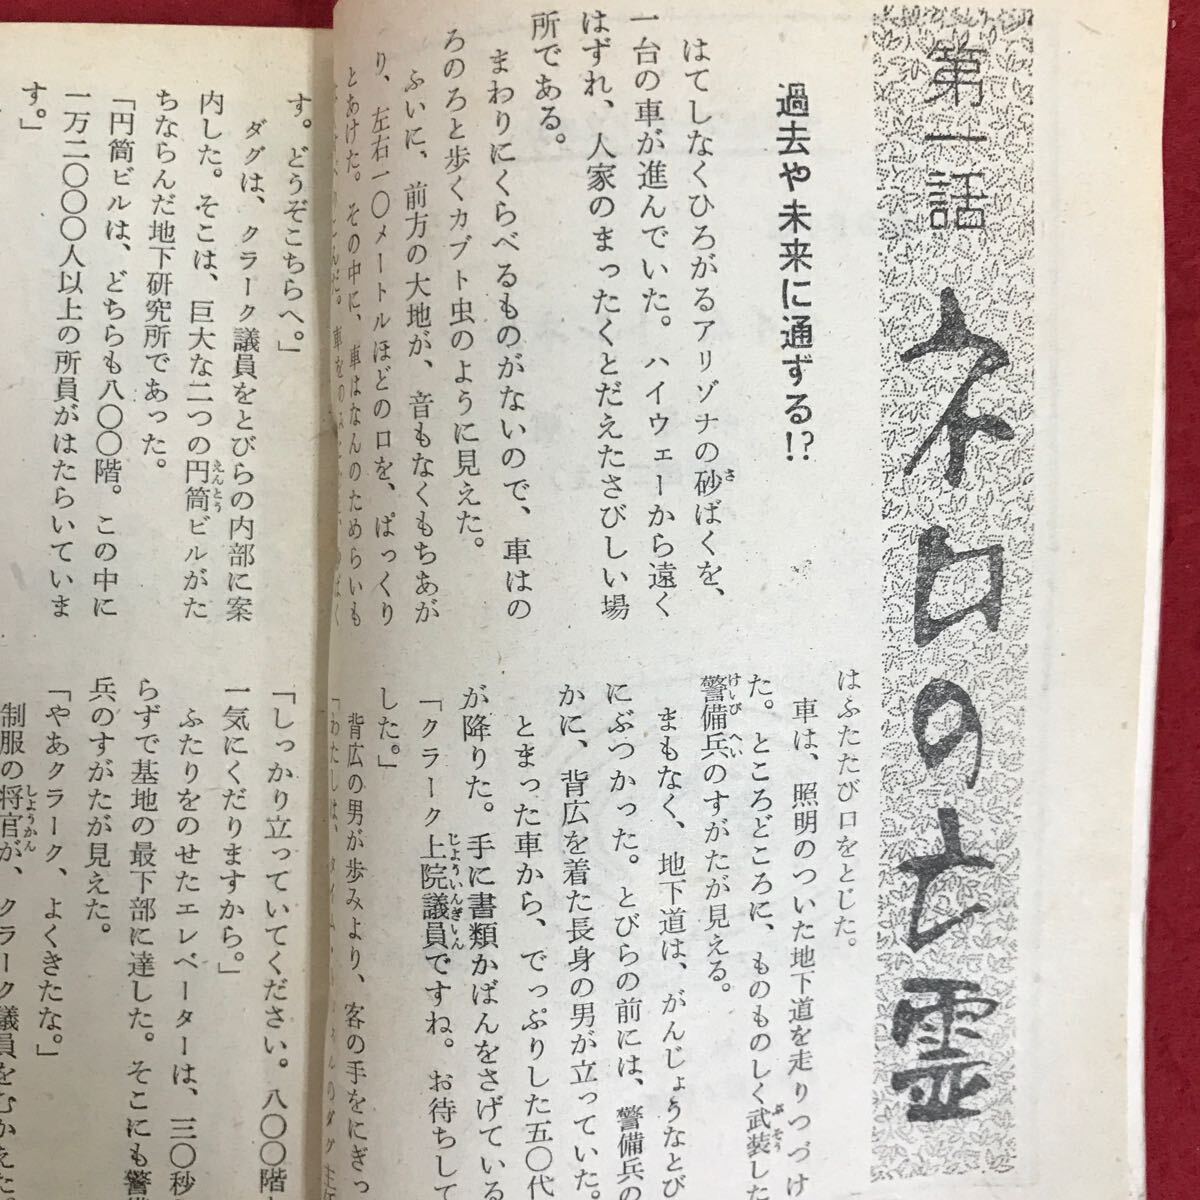 第一話 ネロの亡霊
過去や未来に通ずる!?
はてしなくひろがるアリゾナの砂ばくを、
一台の車が進んでいた。ハイウェーから遠く
はずれ、人家のまったくとだえたさびしい場
所である。
まわりにくらべるものがないので、車はの
ろのろと歩くカブト虫のように見えた。
ふいに、前方の大地が、音もなくもちあが
り、左右一〇メートルほどの口を、ぱっくり
とあけた。その中に、車はなんのためらいも
はふたたび口をとじた。
車は、照明のついた地下道を走りつづけ
た。ところどころに、ものものしく武装した
警備兵のすがたが見える。
まもなく、地下道は、がんじょうなとび
にぶつかった。とびらの前には、警備兵の
かに、背広を着た長身の男が立っていた。
とまった車から、でっぷりした五〇代
が降りた。手に書類かばんをさげている
「クラーク上院議員ですね。お待ちして
した。」
背広の男が歩みより、客の手をにぎっ
「わたしは、タイム・
す。どうぞこちらへ。」
ダグは、クラーク議員をとびらの内部に案
内した。そこは、巨大な二つの円筒ビルがた
ちならんだ地下研究所であった。
「円筒ビルは、どちらも八〇〇階。この中に
一万二〇〇〇人以上の所員がはたらいていま
す。」
「しっかり立っていてください。八〇〇階
一気にくだりますから。」
ふたりをのせたエレベーターは、三〇秒
らずで基地の最下部に達した。そこにも警
兵のすがたが見えた。
「やあクラーク、よくきたな。」
制服の将官が、クラーク議員をむかえた